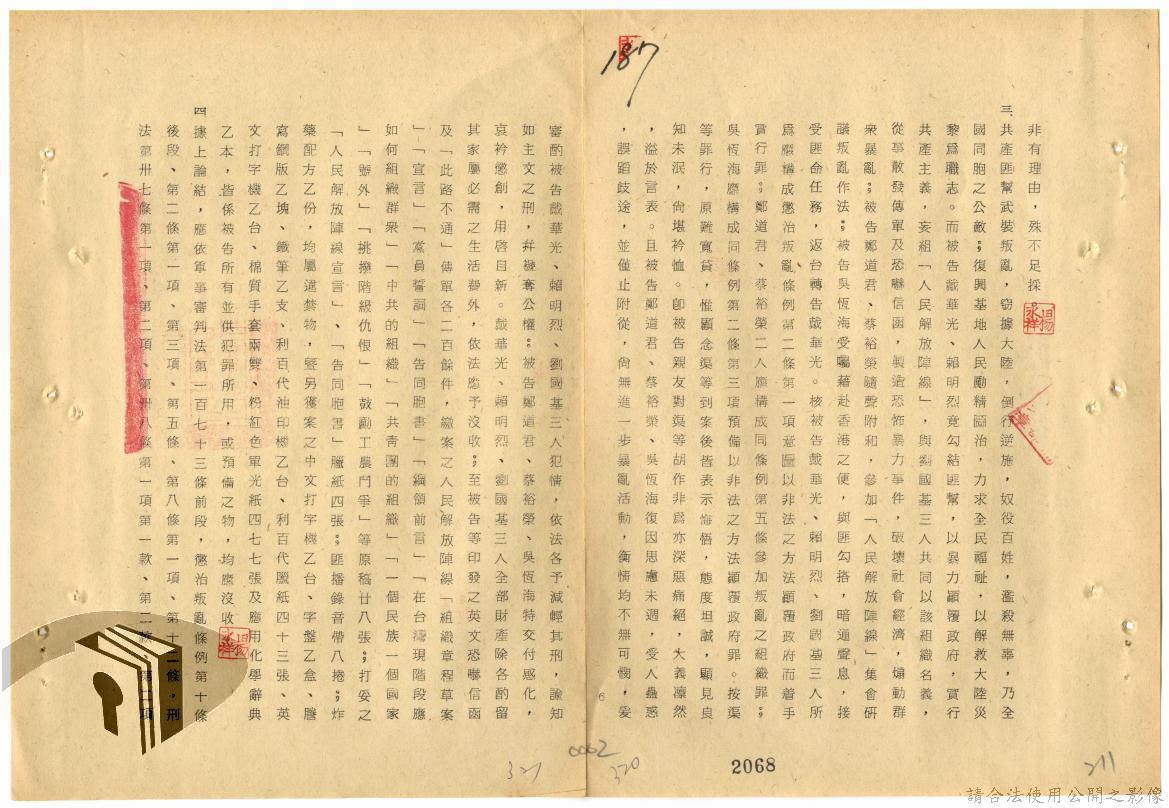 187
非有理由，殊不足採。
三、共產匪幫武裝叛亂，竊據大陸，倒行逆施，奴役百姓，濫殺無辜，乃全
國同胞之公敵；復興基地人民勵精圖治，力求全民福祉，以解救大陸災
黎為職志。而被告戴華光、賴明烈竟勾結匪幫，以暴力顛覆政府，實行
共產主義，妄組「人民解放陣線」，與劉國基三人共同以該組織名義，
從事散發傳單及恐嚇信函，製造恐怖暴力事件，破壞社會經濟，煽動群
衆暴亂；被告鄭道君、蔡裕榮隨聲附和，參加「人民解放陣線」集會研
議叛亂作法；被告吳恆海受囑藉赴香港之便，與匪勾搭，暗通聲息，接
受匪命任務，返台轉告戴華光。核被告戴華光、賴明烈、劉國基三人所
為應構成懲治叛亂條例第二條第一項意圖以非法之方法顛覆政府而着手
實行罪；鄭道君、蔡裕榮二人應構成同條例第五條參加叛亂之組織罪；
吳恆海應構成同條例第二條第三項預備以非法之方法顛覆政府罪。按渠
等罪行，原難寬貸，惟顧念渠等到案後皆表示悔悟，態度坦誠，顯見良
知未泯，尙堪衿恤。卽被告親友對渠等胡作非為亦深惡痛絕，大義凜然
，溢於言表。且被告鄭道君、蔡裕榮、吳恆海復因思慮未週，受人蠱惑
，誤蹈歧途，並僅止附從，尙無進一步暴亂活動，衡情均不無可憫，爰
審酌被告戴華光、賴明烈、劉國基三人犯情，依法各予減輕其刑，諭知
如主文之刑，幷褫奪公權。被告鄭道君、蔡裕榮、吳恆海特交付感化，
哀衿懲創，用啓自新。戴華光、賴明烈、劉國基三人全部財產除各酌留
其家屬必需之生活費外，依法應予沒收。至被告等印發之英文恐嚇信函
及「此路不通」傳單各二百餘件，繳案之人民解放陣線「組織章程草案
」「宣言」「黨員誓詞」「告同胞書」「綱領前言」「在台灣現階段應
如何組織群衆」「中共的組織」「共靑團的組織」「一個民族一個國家
」「號外」「挑撥階級仇恨」「鼓勵工農鬥爭」等原稿廿八張；打妥之
「人民解放陣線宣言」、「告同胞書」臘紙四張；匪播錄音帶八捲；炸
藥配方乙份，均屬違禁物，暨另獲案之中文打字機乙台、字盤乙盒、謄
寫鋼版乙塊、鐵筆乙支、利百代油印機乙台、利百代臘紙四十三張、英
文打字機乙台、棉質手套兩雙、粉紅色單光紙四七七張及應用化學辭典
乙本，皆係被告所有並供犯罪所用，或預備之物，均應沒收
四據上論結，應依軍事審判法第一百七十三條前段，懲治叛亂條例第十條
後段、第二條第一項、第三項、第五條、第八條第一項、第十二條，刑
法第卅七條第一項、第二項、第卅八條第一項第一款、第二款、第二項
6
0062
321
320
2068
211
請合法使用公開之影像